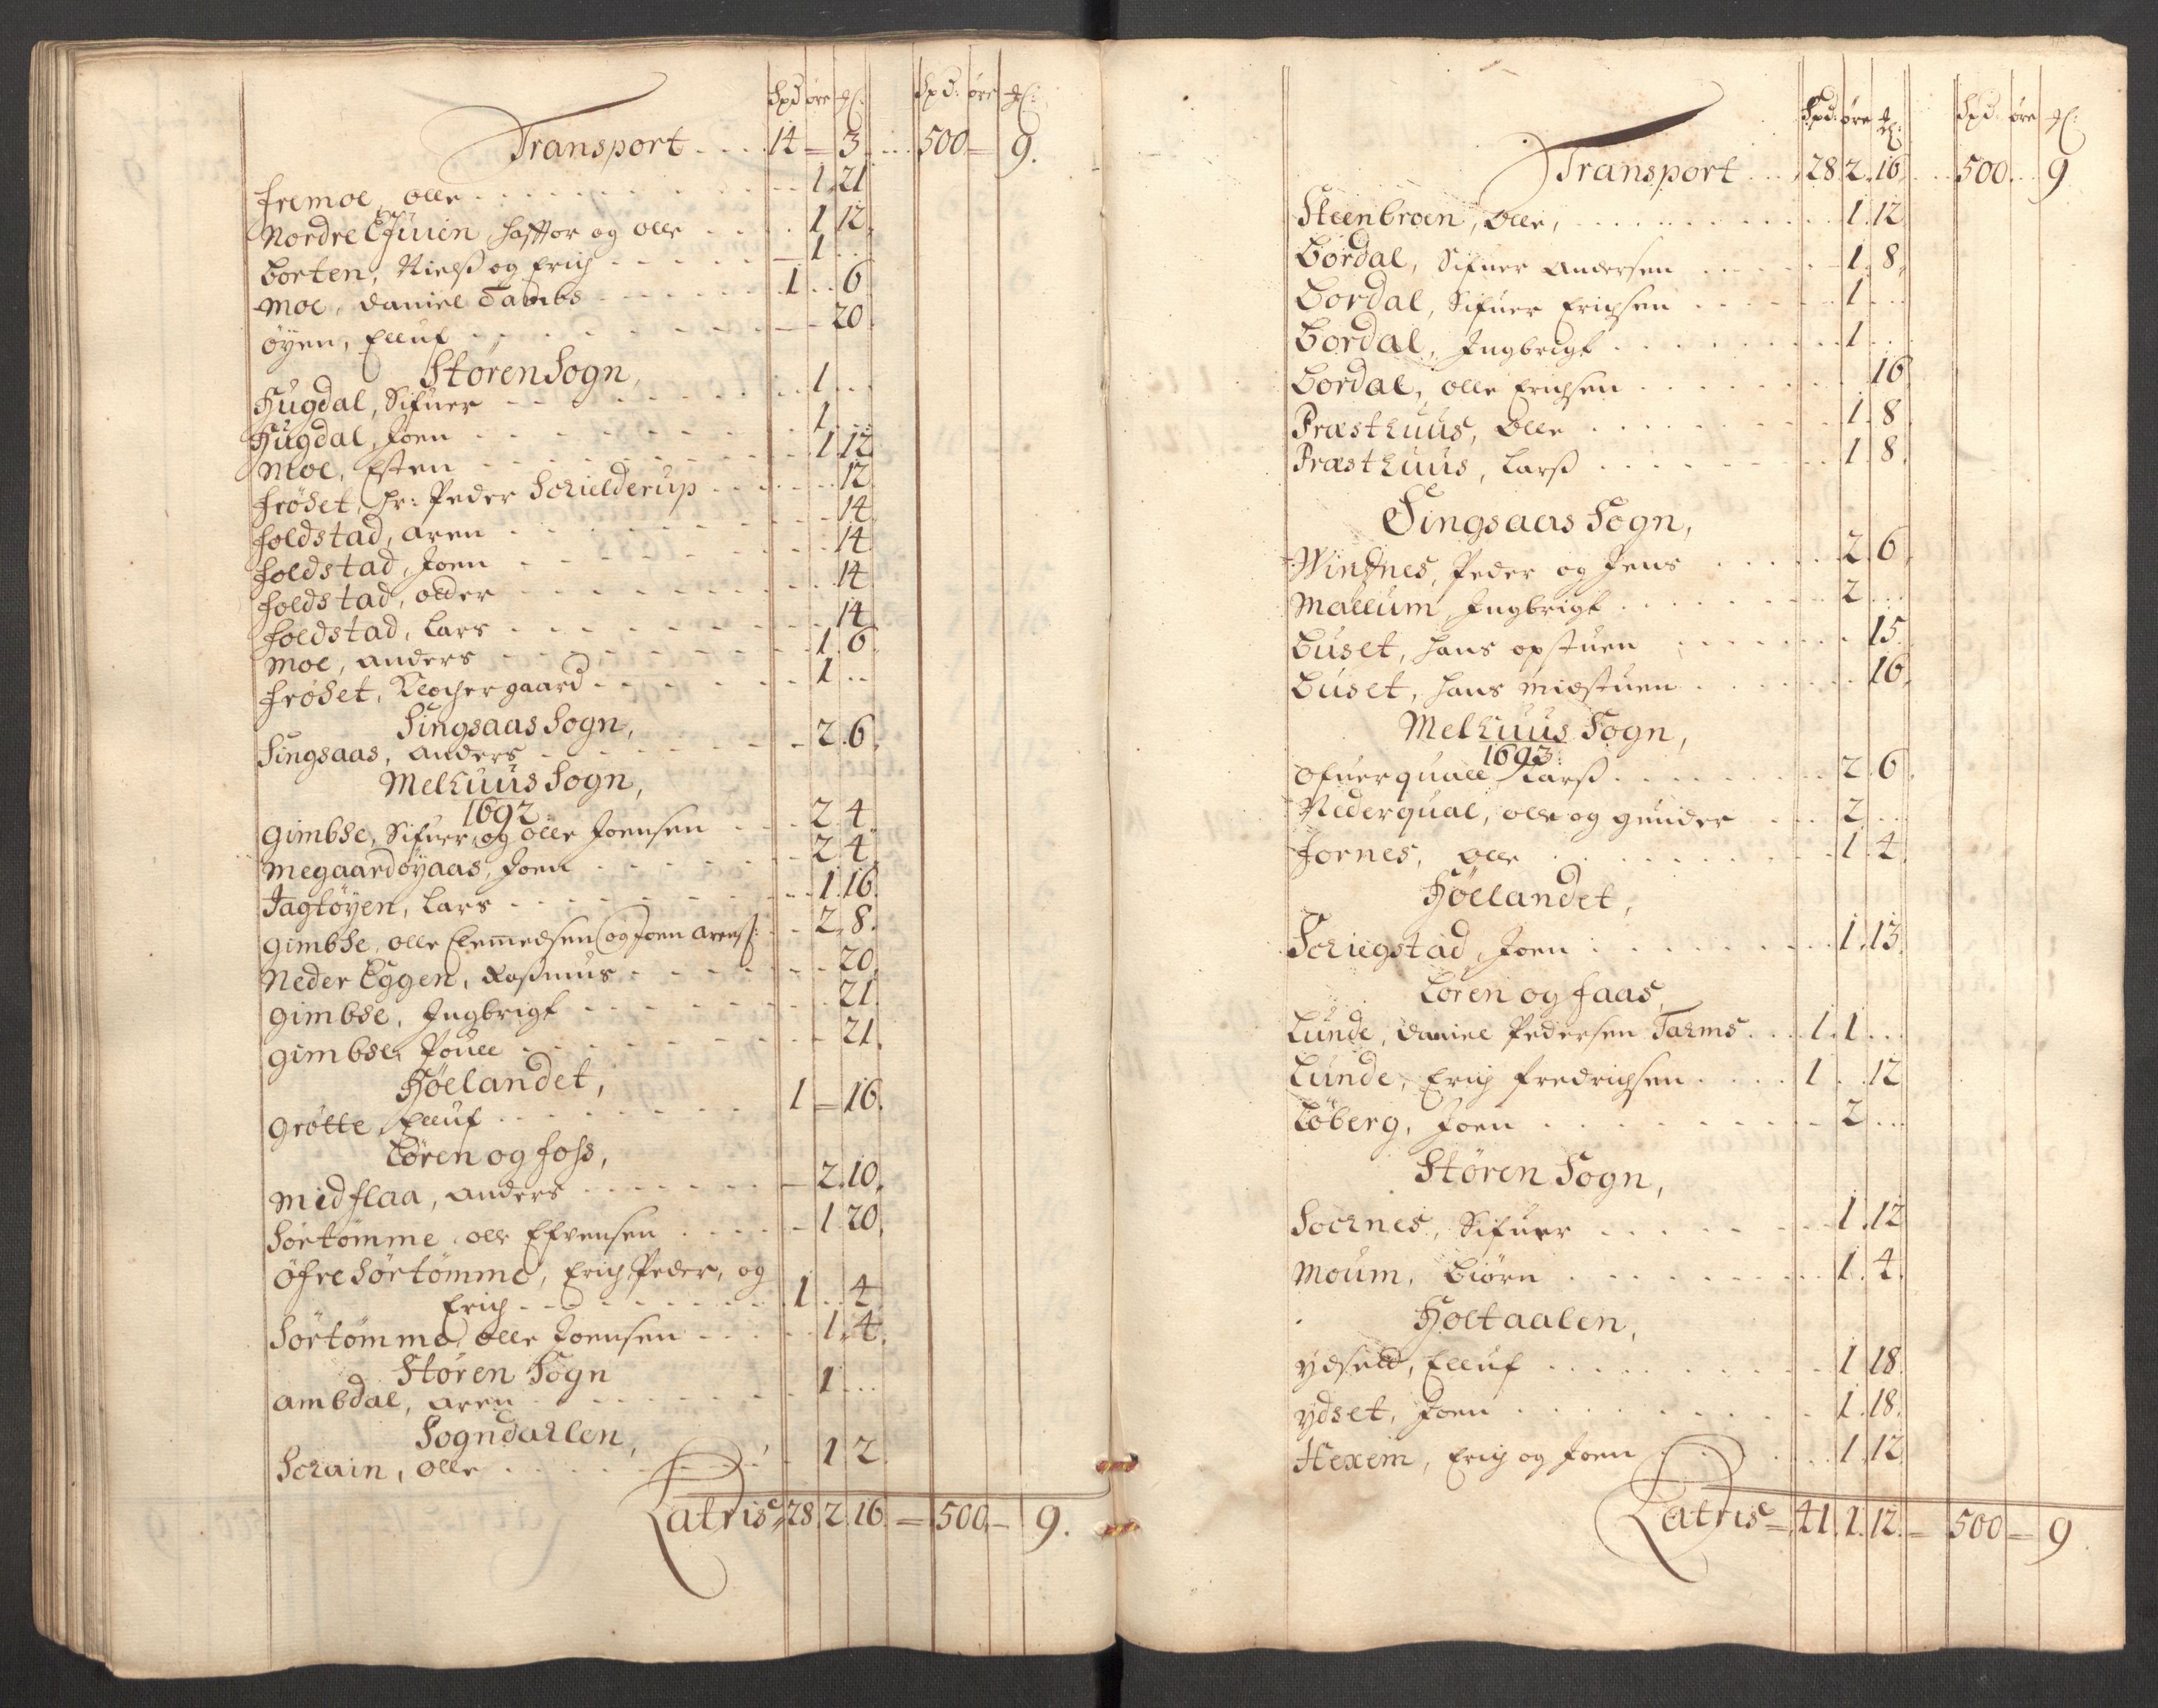 Spd øre
Spd: øre
Transport . . . . 14 = 3 . . . . 500 = 9.
Fremoe, Olle . . . 1. 21
Nordre Efuien, Haffor og Olle . . . 1 12.
Borten, Nielß og Erich . . . 1 . .
Moe, Daniel Tambs . . . 1 . . 6
Øyen, Elluf . . . 20.
Støren Sogn,
Hugdal, Sifuer . . . 1 . .
Hugdal, Joen . . . 1 . .
Moe, Esten . . . 1. 12
Frøset, Hr: Peder Schielderup . . . 12
Foldstad, Aren . . . 14
Foldstad, Joen . . . 14
Foldstad, Older . . . 14
Foldstad, Lars . . . 14
Moe, Anders . . . 1. 6.
Frøset, Klochergaard . . . 1 . .
Singsaas Sogn,
Singsaas, Anders . . . 2. 6.
Melhuus Sogn,
1692.
Gimbse, Sifuer og Olle Joensen . . . 2 4
Megaardøyaas, Joen . . . 2 4
Jagtøyen, Lars . . . 1. 16.
Gimbse, Olle Clemedsen og Joen Arenss: . . 2. 8.
Neder Eggen, Rasmus . . . 20.
Gimbse, Ingbrigt . . . 21.
Gimbse, Pouel . . . 21.
Høelandet,
Grøtte, Elluf . . . 1 = 16.
Løren og Foss,
Midflaa, Anders . . . 2. 10.
Sørtømme, Olle Efvensen . . . 1. 20.
Øfre Sørtømme, Erich Peder, og
Erich . . . 1 . . 4
Sørtømme, Olle Joensen . . . 1. 4.
Støren Sogn
Ambdal, Aren . . . 1 . . .
Sogndahlen,
Schain, Olle . . . 1 2.
Latris 28. 2. 16. = 500. = 9.
Spd: øre
Spd øre
Transport . . . 28. 2. 16. . . 500 . . . 9
Steenbroen, Olle, . . . 1. 12
Bordal, Sifuer Andersen . . . 1. 8.
Bordal, Sifuer Erichsen . . . 1 . . .
Bordal, Ingbrigt . . . 1 . . .
Bordal, Olle Erichsen . . . 16
Præsthuus, Olle . . . 1. 8.
Præsthuus, Larß . . . 1 8.
Singsaas Sogn,
Winsnes, Peder og Jens . . . 2. 6.
Mallum, Ingbrigt . . . 2 . . .
Buset, Hans Opstuen . . . 15.
Buset, Hans Midstuen . . . 16.
Melhuus Sogn,
1693:
Ofuerquall Larß . . . 2. 6.
Nederqual, Olle og Gunder . . . 2 . . .
Fornes, Olle . . . 1. 4.
Høelandet,
Schiegstad, Joen . . . 1. 13.
Loren og Faas,
Lunde, Daniel Pedersen Tarms . . . 1. 1 . . .
Lunde, Erich Fredrichsen . . . 1 . . 12
Løberg, Joen . . . 2 . . .
Støren Sogn,
Socknes, Sifuer . . . 1. 12
Moum, Biørn . . . 1. 4.
Holtaalen,
Ydseld, Elluf . . . 1 18.
Ydset, Joen . . . 1. 18.
Hexem, Erich og Joen . . . 1. 12
Latris = 41. 1. 12. = 500 = 9